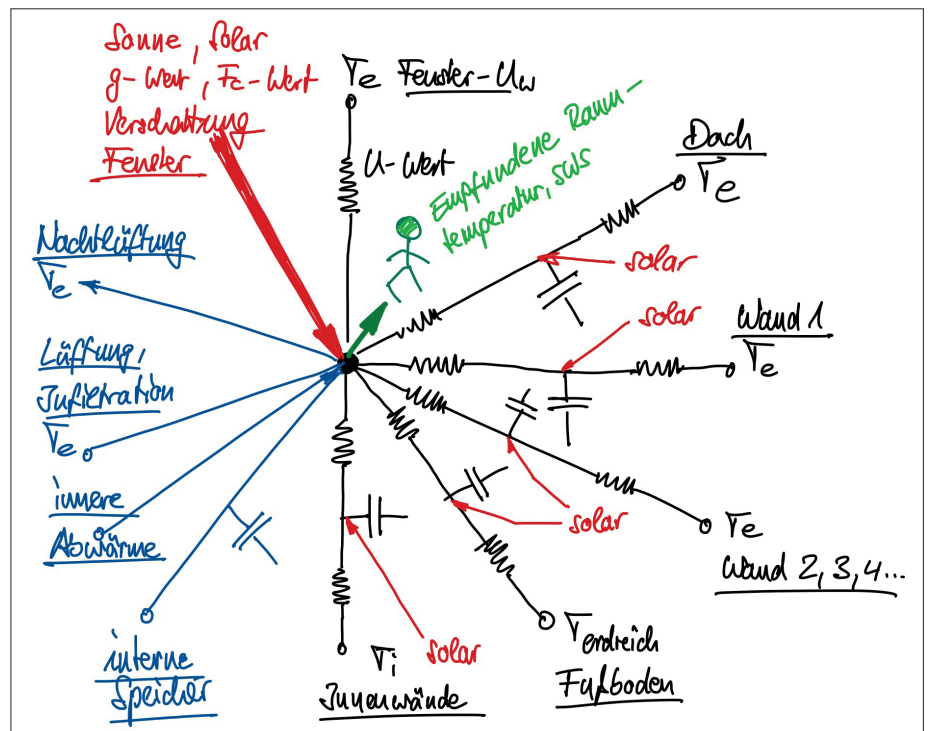 Sonne, Solar
g-Wert, Fc-Wert
Verschattung
Fenster
Te Fenster-Uw
U-Wert
Empfundene Raum-
temperatur, sws
Dach
Te
solar
solar
Wand 1
Te
Nachtlüftung
Te
Lüftung,
Infiltration
Te
innere
Abwärme
interne
Speicher
solar
Te
Wand 2, 3, 4...
Terdreich
Fußboden
solar
Ti
Innenwände